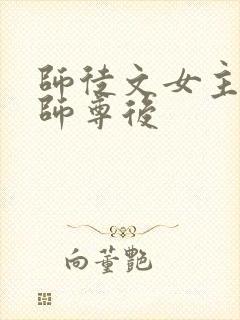 師徒文女主
師尊後
向董艷